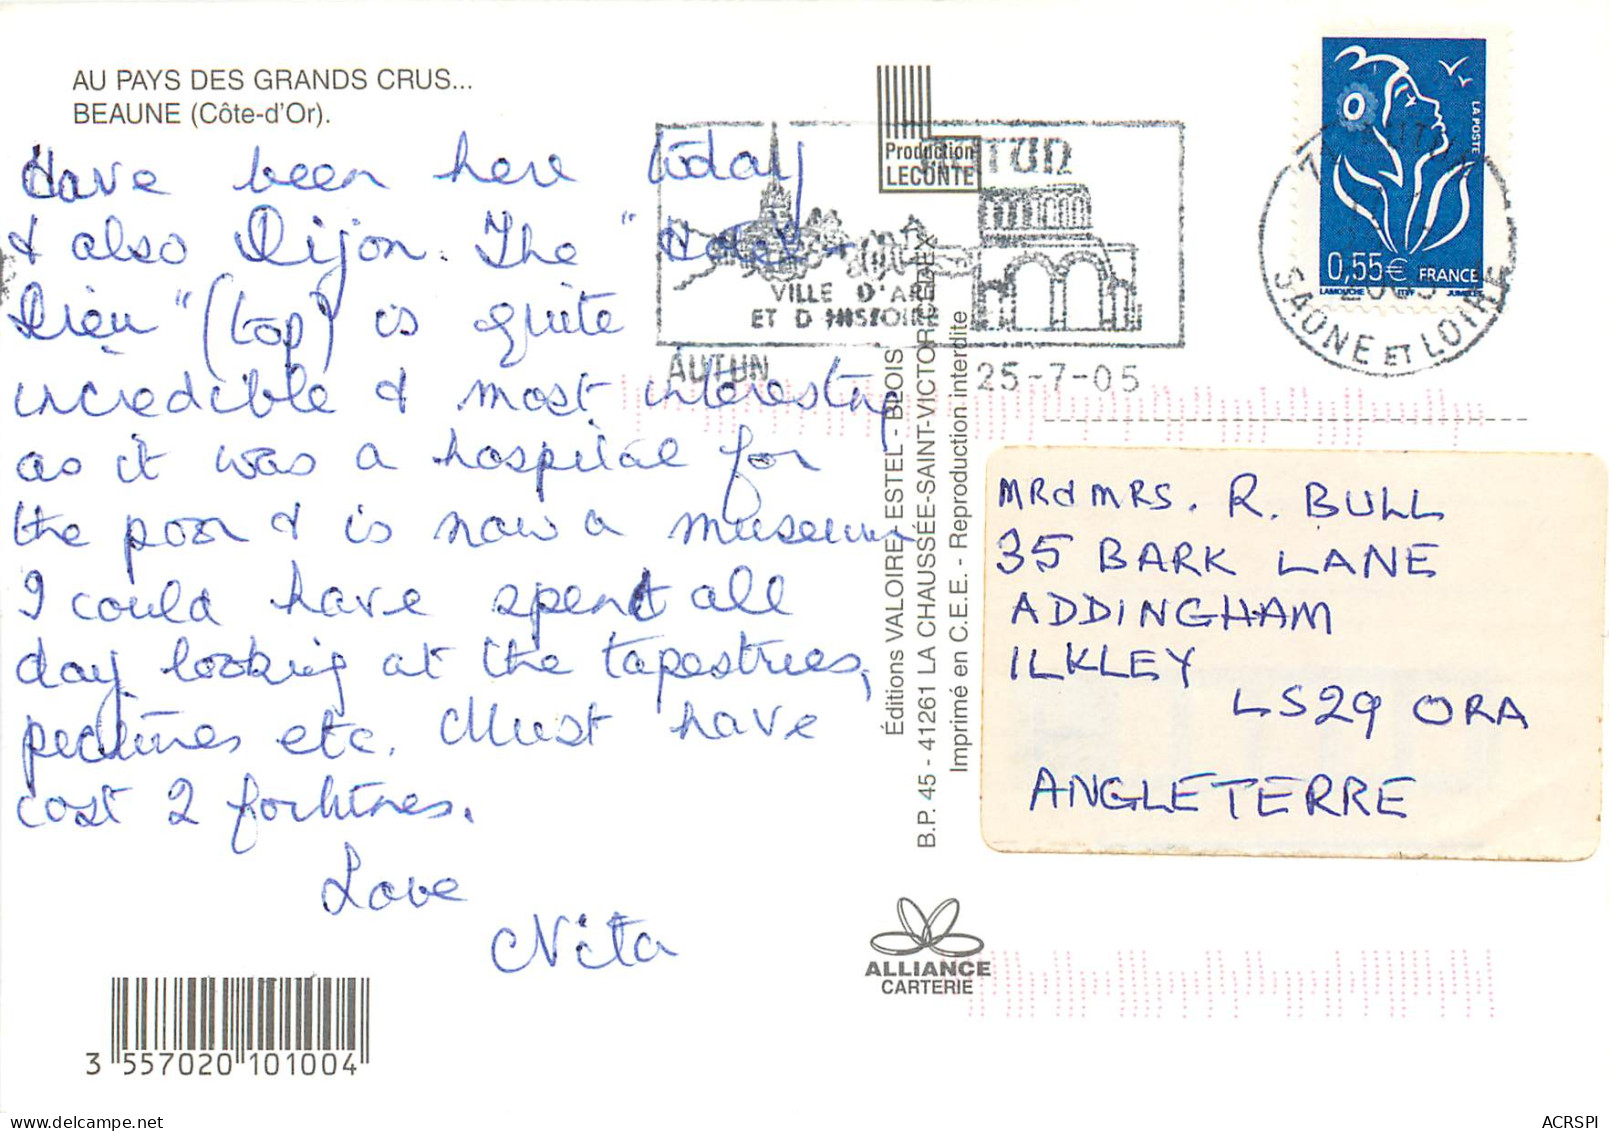 AU PAYS DES GRANDS CRUS...
BEAUNE (Côte-d'Or).
Have been here today
& also Dijon. The "Hotel-
Dieu" (top) is quite
incredible & most interesting
as it was a hospital for
the poor & is now a museum
I could have spent all
day looking at the tapestries,
pictures etc. Must have
cost 2 fortunes.
Love
Nita
3 557020 101004
Production
LECONTE
AUTUN
VILLE D'ART
ET D HISTOIRE
AUTUN
25-7-05
Éditions VALOIRE-ESTEL - BLOIS
B.P. 45 - 41261 LA CHAUSSÉE-SAINT-VICTOR CEDEX
Imprimé en C.E.E. - Reproduction interdite
ALLIANCE
CARTERIE
LA POSTE
0,55€ FRANCE
LAMOUCHE ITVF JUMELET
SAONE ET LOIRE
MR & MRS. R. BULL
35 BARK LANE
ADDINGHAM
ILKLEY
LS29 ORA
ANGLETERRE
ACRSPI